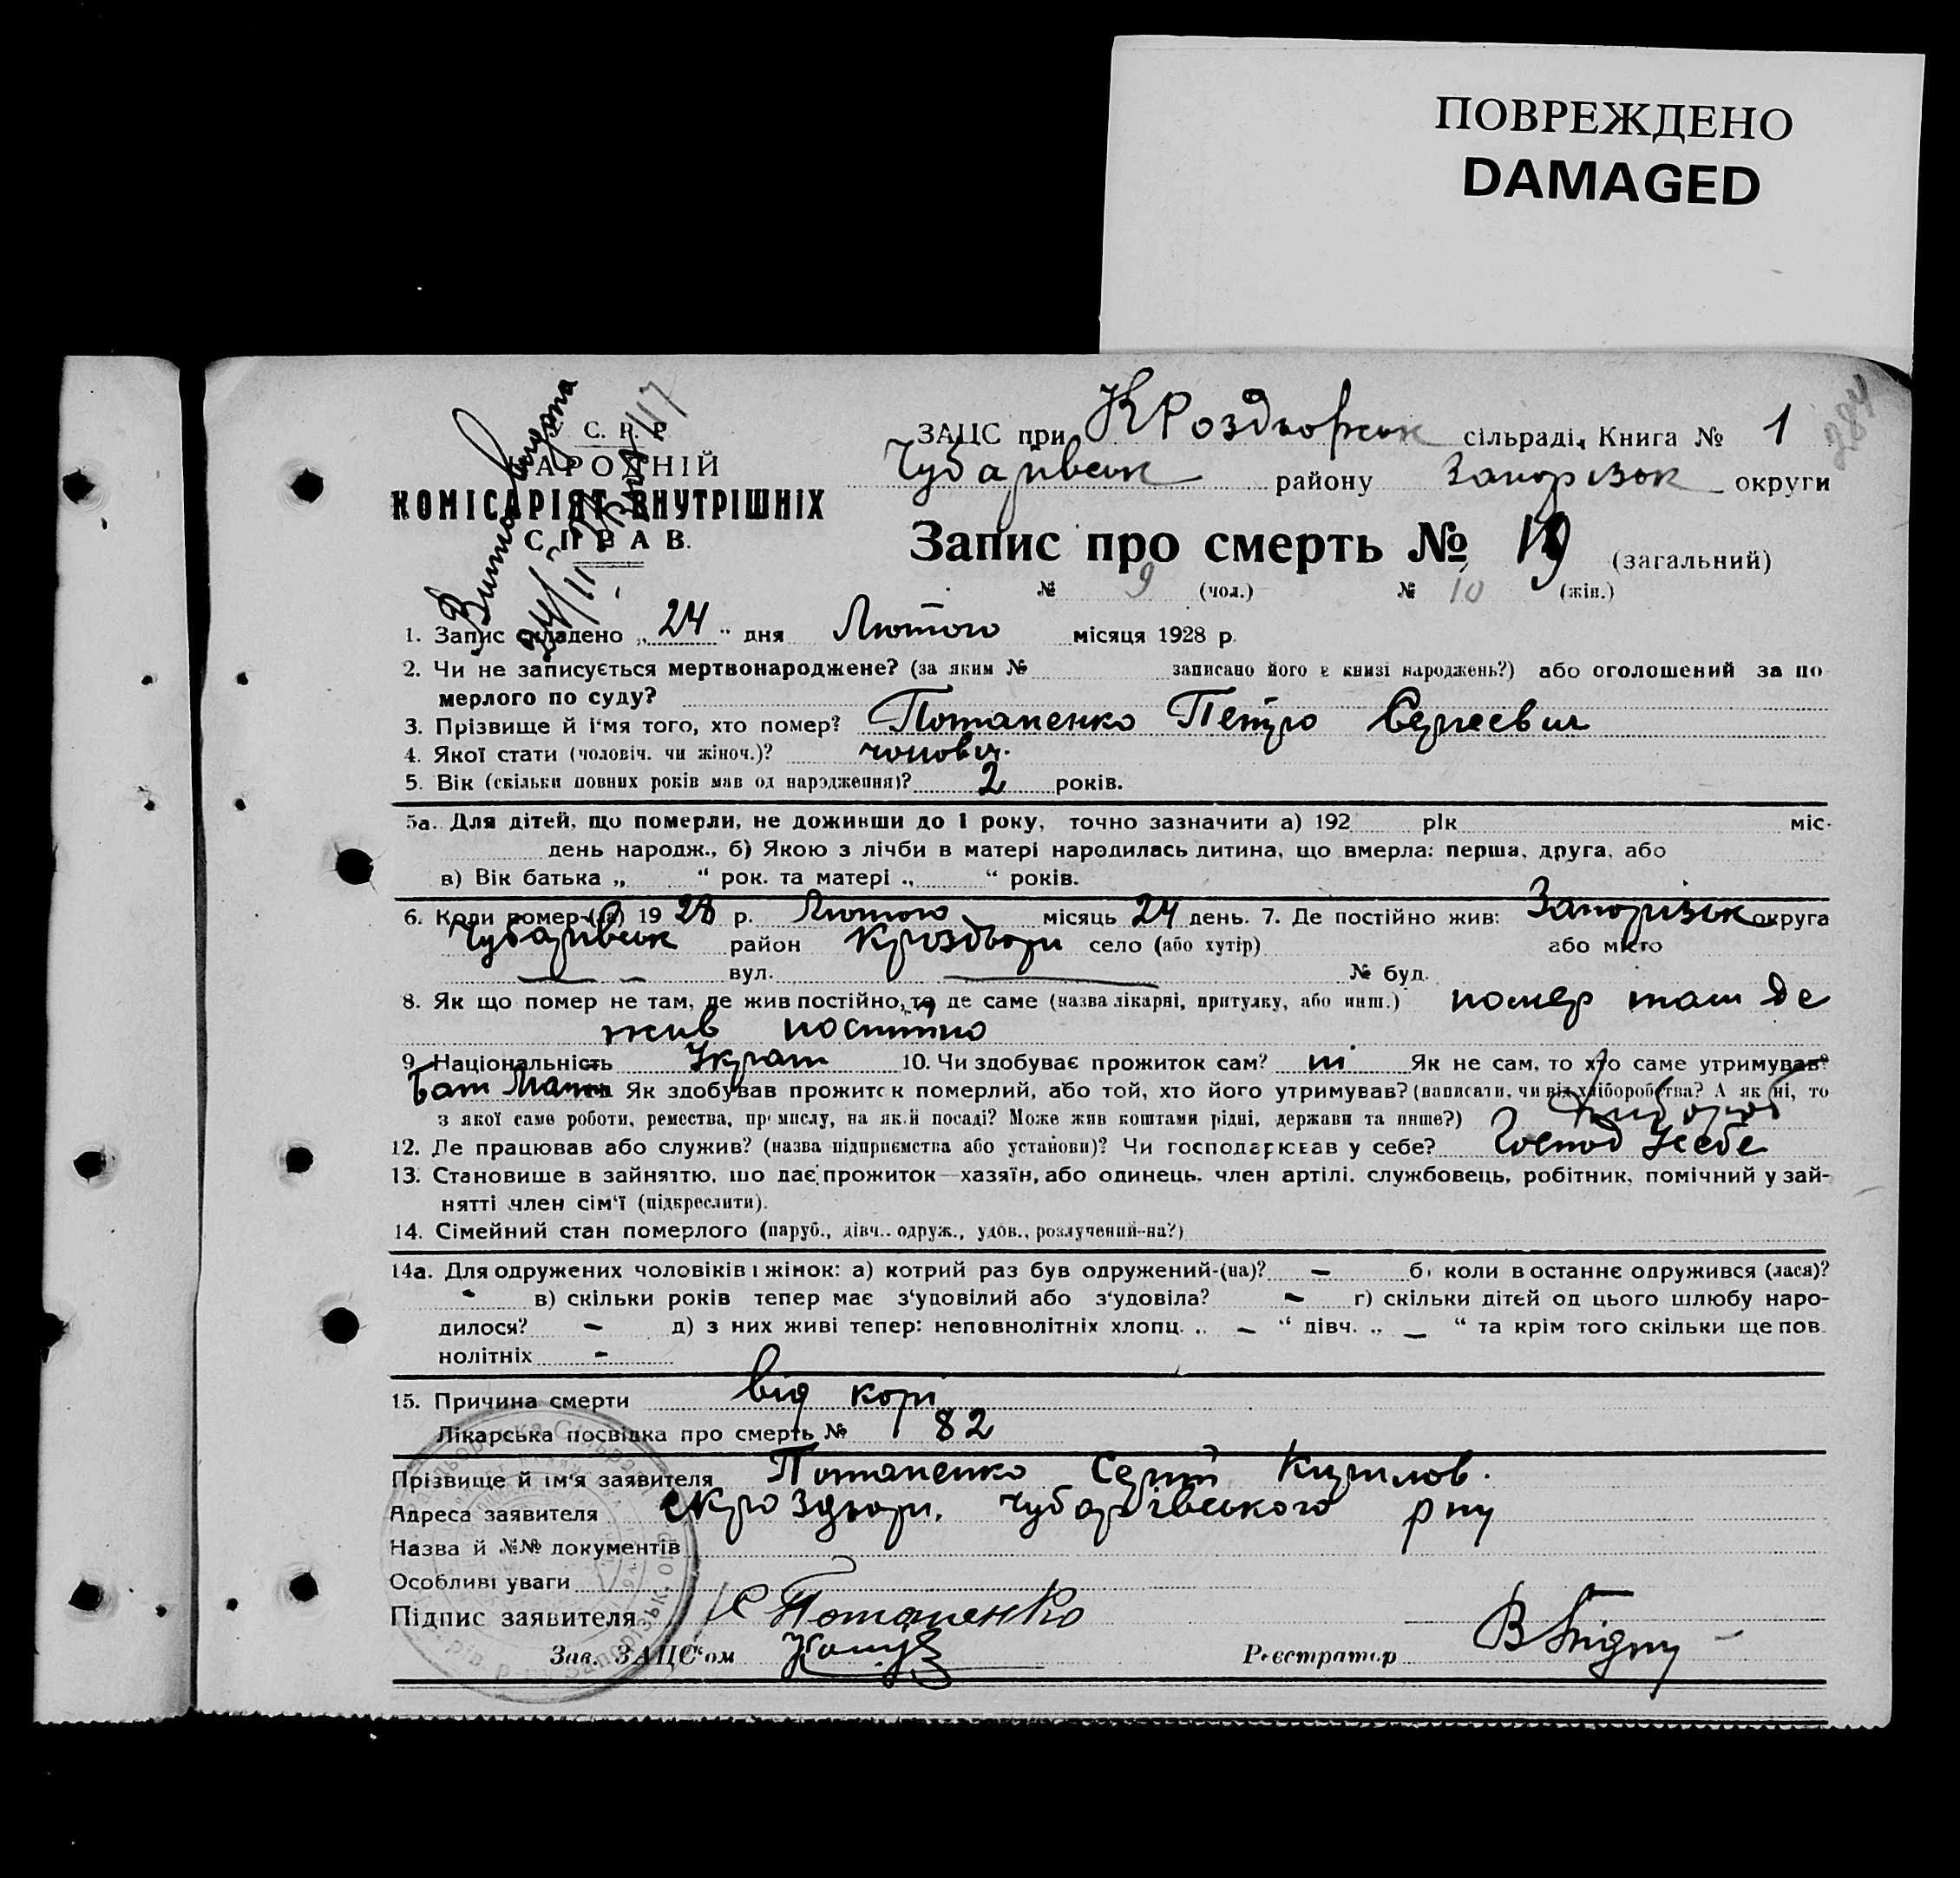 ПОВРЕЖДЕНО
DAMAGED
С. Р. Р.
НАРОДНІЙ
КОМІСАРІЯТ ВНУТРІШНІХ
СПРАВ.
ЗАЦС при КРоздорськ сільраді, Книга № 1
Чубарівськ району Запорізьк округи
Запис про смерть № 19 (загальний)
№ 9 (чол.) № 10 (жін.)
1. Запис складено „ 24 " дня Лютого місяця 1928 р.
2. Чи не записується мертвонароджене? (за яким № записано його в книзі народжень?) або оголошений за по
мерлого по суду?
3. Прізвище й ім'я того, хто помер? Потапенко Петро Сергеевич
4. Якої стати (чоловіч. чи жіноч.)? чоловіч.
5. Вік (скільки повних років мав од народження)? 2 років.
5а. Для дітей, що померли, не доживши до 1 року, точно зазначити а) 192 рік міс.
день народж., б) Якою з лічби в матері народилась дитина, що вмерла: перша, друга, або
в) Вік батька „ “ рок. та матері „ “ років.
6. Коли помер (ла) 19 28 р. Лютого місяць 24 день. 7. Де постійно жив: Запорізьк округа
Чубарівськ район Кроздори село (або хутір) або місто
— — вул. — № буд.
8. Як що помер не там, де жив постійно, то де саме (назва лікарні, притулку, або инш.) помер там де
жив постійно
9. Національність Украт 10. Чи здобуває прожиток сам? ні Як не сам, то хто саме утримував?
Бат Мати Як здобував прожиток померлий, або той, хто його утримував? (написати, чи від хліборобства? А як ні, то
з якої саме роботи, ремества, промислу, на якій посаді? Може жив коштами рідні, держави та инше?) Хлібороб
12. Де працював або служив? (назва підприємства або установи)? Чи господарював у себе? Господ Усебе
13. Становище в зайняттю, що дає прожиток—хазяїн, або одинець, член артілі, службовець, робітник, помічний у зай-
нятті член сім'ї (підкреслити).
14. Сімейний стан померлого (паруб., дівч.. одруж., удов., розлучений-на?)
14а. Для одружених чоловіків і жінок: а) котрий раз був одружений-(на)? — б) коли в останнє одружився (лася)?
- в) скільки років тепер має з'удовілий або з'удовіла? — г) скільки дітей од цього шлюбу наро-
дилося? — д) з них живі тепер: неповнолітніх хлопц. „ — “ дівч. „ — “ та крім того скільки ще пов.
нолітніх -
15. Причина смерти від корі
Лікарська посвідка про смерть № 82
Прізвище й ім'я заявителя Потапенко Сергій Кирилов.
Адреса заявителя с Кроздори. Чубарівського рну
Назва й №№ документів
Особливі уваги
Підпис заявителя С Потапенко
Зав. ЗАЦС'ом
Реєстратор